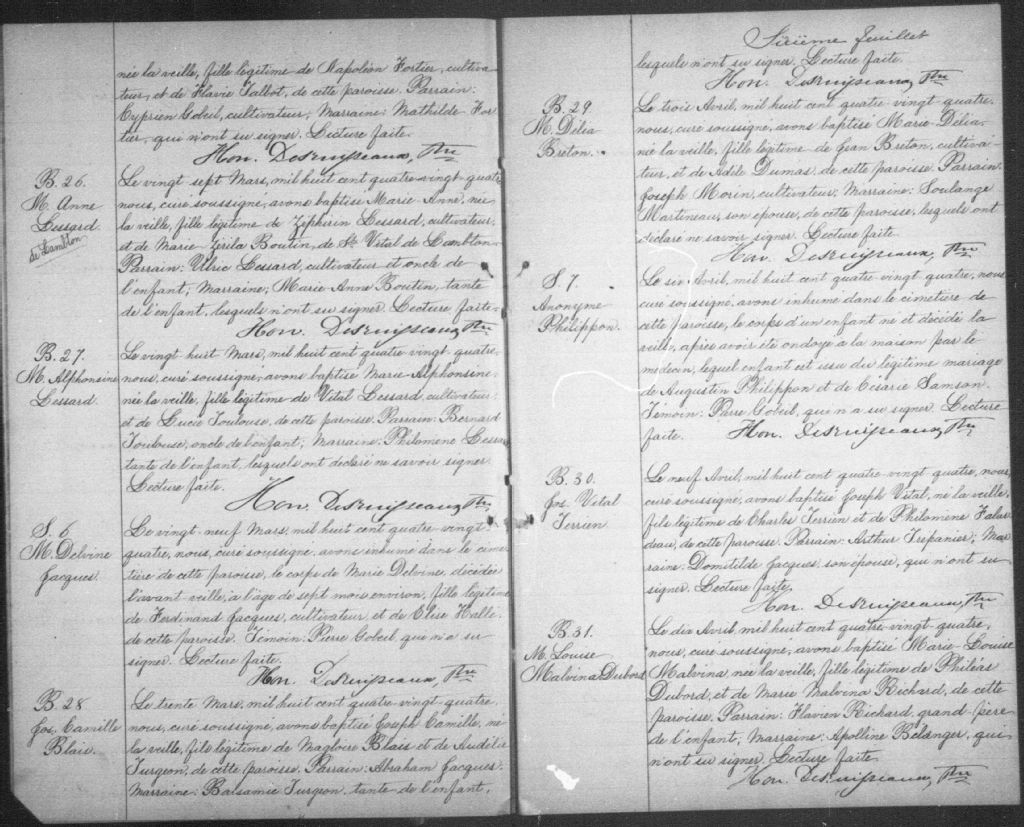 née la veille, fille légitime de Napoléon Fortier, cultiva-
teur, et de Flavie Talbot, de cette paroisse. Parrain:
Cyprien Gobeil, cultivateur, Marraine: Mathilde For-
tier, qui n'ont su signer. Lecture faite.
Hon. Desruisseaux, Ptre
B. 26.
M. Anne
Lessard
de Lambton
Le vingt sept Mars, mil huit cent quatre-vingt-quatre
nous, curé soussigné, avons baptisé Marie-Anne, née
la veille, fille légitime de Zéphirin Lessard, cultivateur,
et de Marie-Zérila Boutin, de St. Vital de Lambton.
Parrain: Ulric Lessard, cultivateur et oncle de
l'enfant; Marraine; Marie-Anne Boutin, tante
de l'enfant, lesquels n'ont su signer. Lecture faite.
Hon. Desruisseaux, Ptre
B. 27.
M. Alphonsine
Lessard.
Le vingt huit Mars, mil huit cent quatre vingt quatre,
nous, curé soussigné, avons baptisé Marie-Alphonsine,
née la veille, fille légitime de Vital Lessard, cultivateur,
et de Lucie Toulouse, de cette paroisse. Parrain: Bernard
Toulouse, oncle de l'enfant; Marraine: Philomène Lessard
tante de l'enfant, lesquels ont déclaré ne savoir signer.
Lecture faite.
Hon. Desruisseaux, Ptre
S. 6
M. Delvine
Jacques.
Le vingt-neuf Mars, mil huit cent quatre-vingt-
quatre, nous, curé soussigné, avons inhumé dans le cime-
tière de cette paroisse, le corps de Marie Delvine, décédée
l'avant veille, à l'âge de sept mois environ, fille légitime
de Ferdinand Jacques, cultivateur, et de Elise Hallé
de cette paroisse. Témoin: Pierre Gobeil, qui n'a su
signer. Lecture faite.
Hon. Desruisseaux, Ptre
B. 28
Jos. Camille
Blais.
Le trente Mars, mil huit cent quatre-vingt-quatre,
nous, curé soussigné, avons baptisé Joseph Camille, né
la veille, fils légitime de Magloire Blais et de Audélie
Turgeon, de cette paroisse. Parrain: Abraham Jacques.
Marraine: Balsamie Turgeon, tante de l'enfant,
Sixième feuillet
lesquels n'ont su signer. Lecture faite.
Hon. Desruisseaux, Ptre
B. 29.
M. Délia
Breton.
Le trois Avril, mil huit cent quatre-vingt-quatre,
nous, curé soussigné, avons baptisé Marie-Délia,
née la veille, fille légitime de Jean Breton, cultiva-
teur, et de Adèle Dumas, de cette paroisse. Parrain:
Joseph Morin, cultivateur; Marraine: Soulange
Martineau, son épouse, de cette paroisse, lesquels ont
déclaré ne savoir signer. Lecture faite.
Hon. Desruisseaux, Ptre
S. 7.
Anonyme
Philippon.
Le six Avril, mil huit cent quatre-vingt quatre, nous
curé soussigné, avons inhumé dans le cimetière de
cette paroisse, le corps d'un enfant né et décédé la
veille, après avoir été ondoyé à la maison par le
médecin, lequel enfant est issu du légitime mariage
de Augustin Philippon et de Césarie Samson.
Témoin: Pierre Gobeil, qui n'a su signer. Lecture
faite. Hon. Desruisseaux, Ptre
B. 30.
Jos. Vital
Terrien.
Le neuf Avril, mil huit cent quatre-vingt quatre, nous,
curé soussigné, avons baptisé Joseph Vital, né la veille,
fils légitime de Charles Terrien et de Philomène Falar-
deau, de cette paroisse. Parrain: Arthur Trepanier; Mar-
raine: Domitilde Jacques, son épouse, qui n'ont su
signer. Lecture faite.
Hon. Desruisseaux, Ptre
B. 31.
M. Louise
Malvina Dubord
Le dix Avril, mil huit cent quatre-vingt quatre,
nous, curé soussigné, avons baptisé Marie-Louise
Malvina, née la veille, fille légitime de Philias
Dubord, et de Marie Malvina Richard, de cette
paroisse. Parrain: Flavien Richard, grand-père
de l'enfant; Marraine: Apolline Bélanger, qui
n'ont su signer. Lecture faite.
Hon. Desruisseaux, Ptre